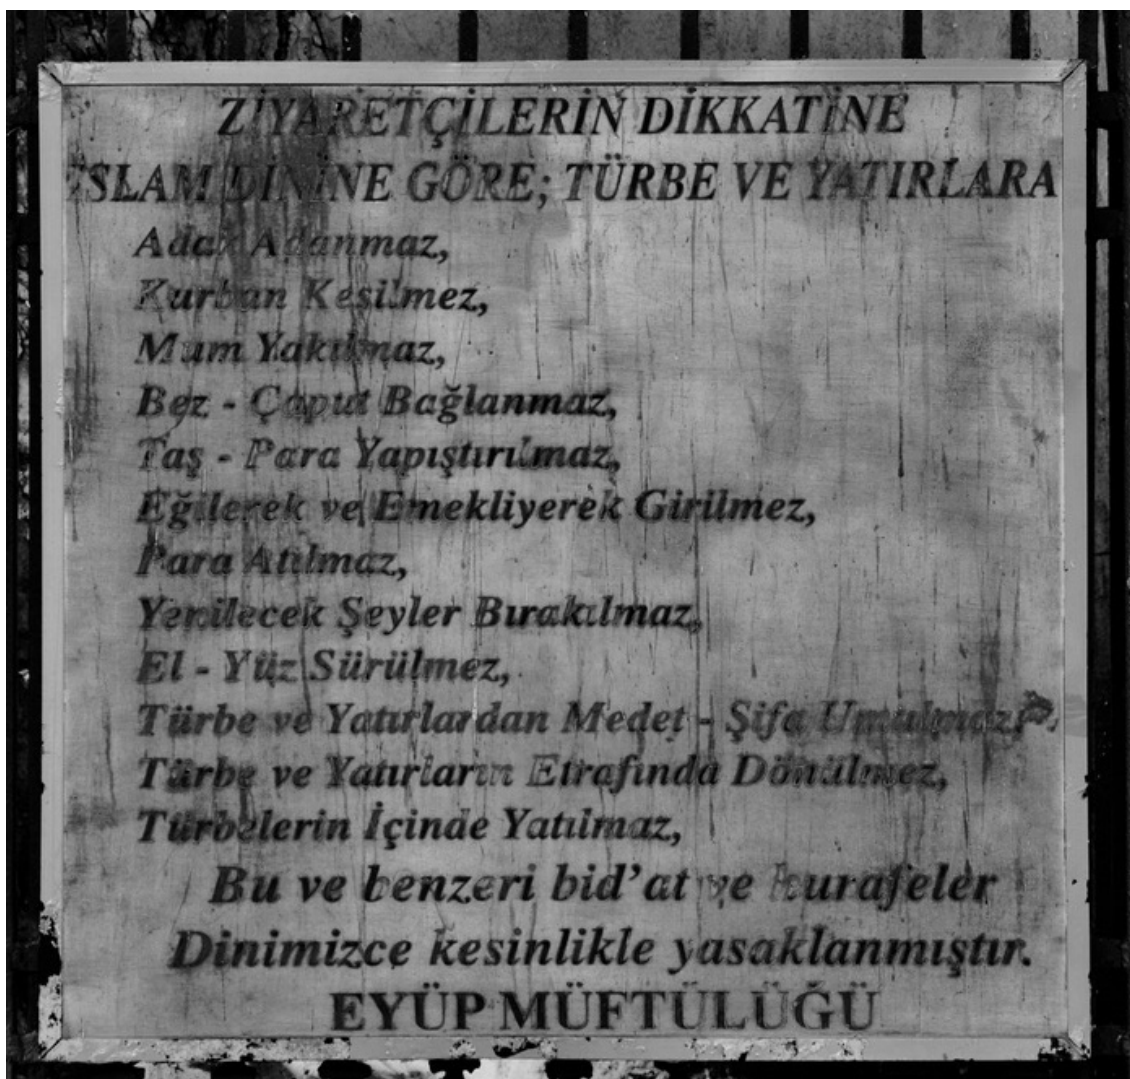 ZİYARETÇİLERİN DİKKATİNE
İSLAM DİNİNE GÖRE; TÜRBE VE YATIRLARA
Adak Adanmaz,
Kurban Kesilmez,
Mum Yakılmaz,
Bez - Çaput Bağlanmaz,
Taş - Para Yapıştırılmaz,
Eğilerek ve Emekliyerek Girilmez,
Para Atılmaz,
Yenilecek Şeyler Bırakılmaz,
El - Yüz Sürülmez,
Türbe ve Yatırlardan Medet - Şifa Umulmaz,
Türbe ve Yatırların Etrafında Dönülmez,
Türbelerin İçinde Yatılmaz,
Bu ve benzeri bid'at ve hurafeler
Dinimizce kesinlikle yasaklanmıştır.
EYÜP MÜFTÜLÜĞÜ